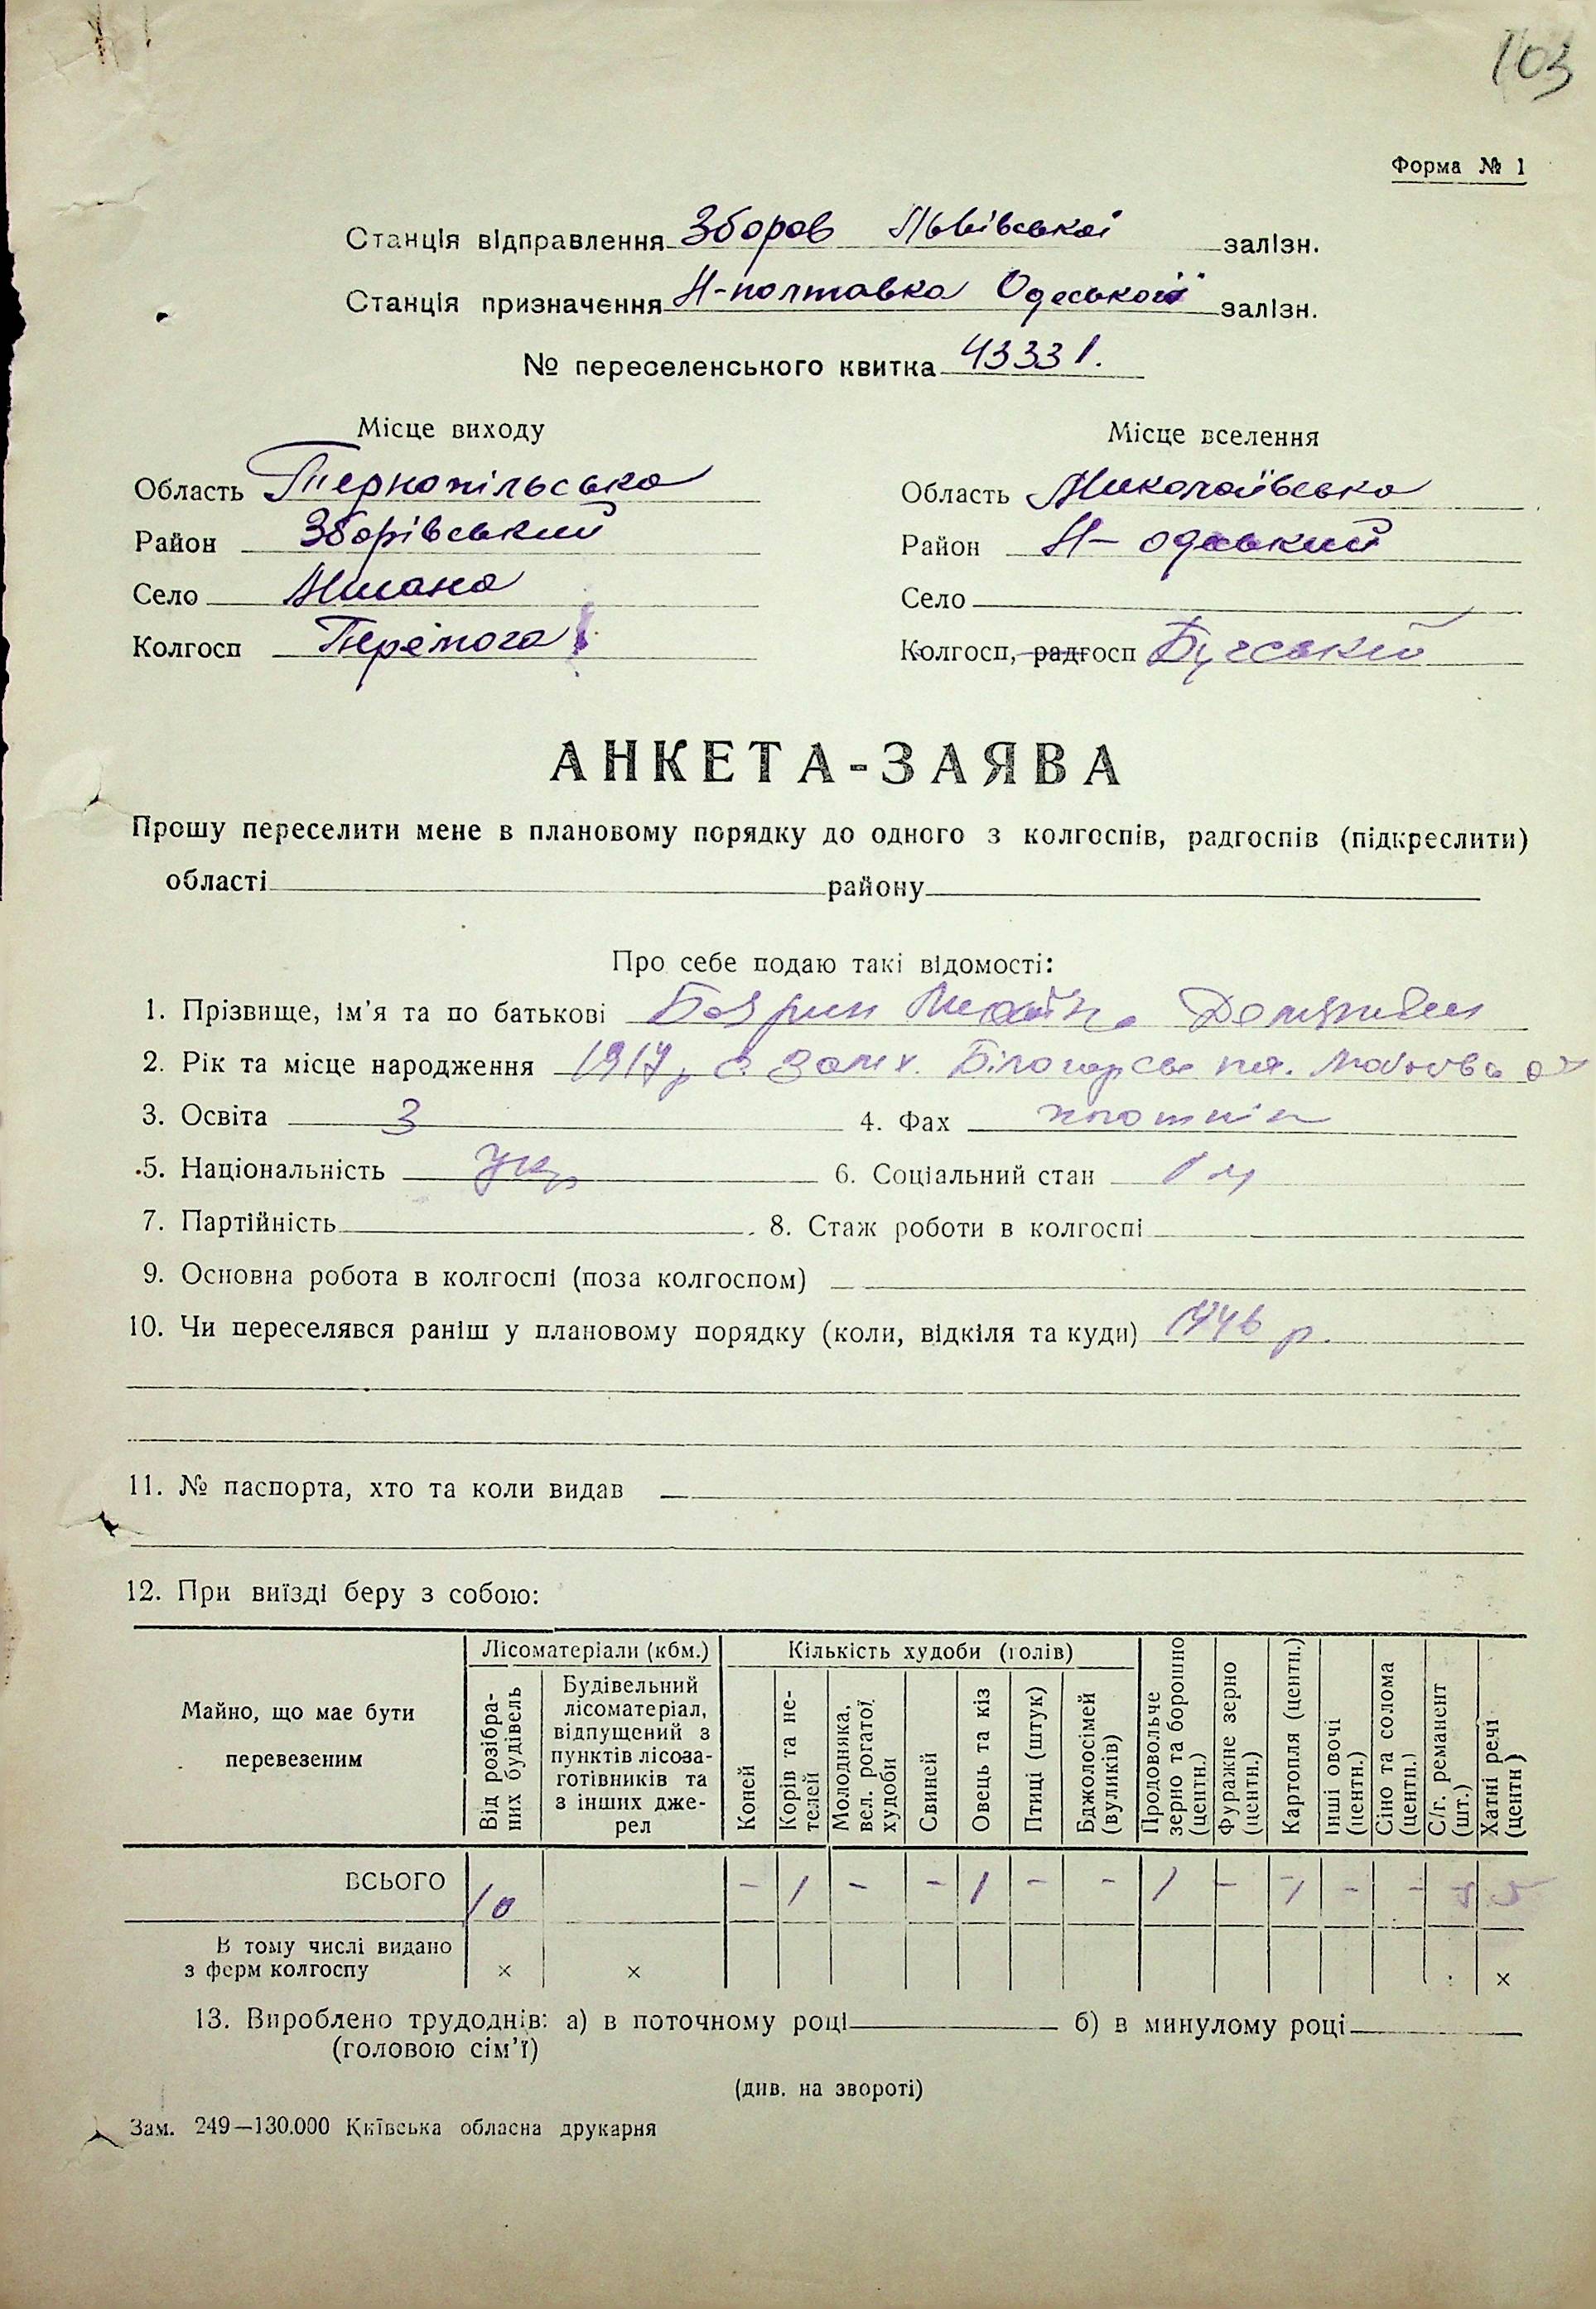 103
Форма № 1
Станція відправлення Зборов Львівської залізн.
Станція призначення Н-полтавка Одеської залізн.
№ переселенського квитка 43331.
Місце виходу
Місце вселення
Область Тернопільська
Область Миколаївська
Район Зборівський
Район Н-одеський
Село Млинова
Село
Колгосп Перемога
Колгосп, радгосп Бугський
АНКЕТА-ЗАЯВА
Прошу переселити мене в плановому порядку до одного з колгоспів, радгоспів (підкреслити)
області району
Про себе подаю такі відомості:
1. Прізвище, ім'я та по батькові Боярин
2. Рік та місце народження 1917 р с.
3. Освіта 3 4. Фах
5. Національність укр. 6. Соціальний стан
7. Партійність 8. Стаж роботи в колгоспі
9. Основна робота в колгоспі (поза колгоспом)
10. Чи переселявся раніш у плановому порядку (коли, відкіля та куди) 1946 р.
11. № паспорта, хто та коли видав
12. При виїзді беру з собою:
Майно, що має бути перевезеним
Лісоматеріали (кбм.)
Від розібраних будівель
Будівельний лісоматеріал, відпущений з пунктів лісозаготівників та з інших джерел
Кількість худоби (голів)
Коней
Корів та нетелей
Молодняка, вел. рогатої худоби
Свиней
Овець та кіз
Птиці (штук)
Бджолосімей (вуликів)
Продовольче зерно та борошно (центн.)
Фуражне зерно (центн.)
Картопля (центн.)
Інші овочі (центн.)
Сіно та солома (центн.)
С/г. реманент (шт.)
Хатні речі (центн)
ВСЬОГО 10 - 1 - - 1 - - 1 - 1 - - 5
В тому числі видано
з ферм колгоспу × × ×
13. Вироблено трудоднів: а) в поточному році б) в минулому році
(головою сім'ї)
(див. на звороті)
Зам. 249—130.000 Київська обласна друкарня